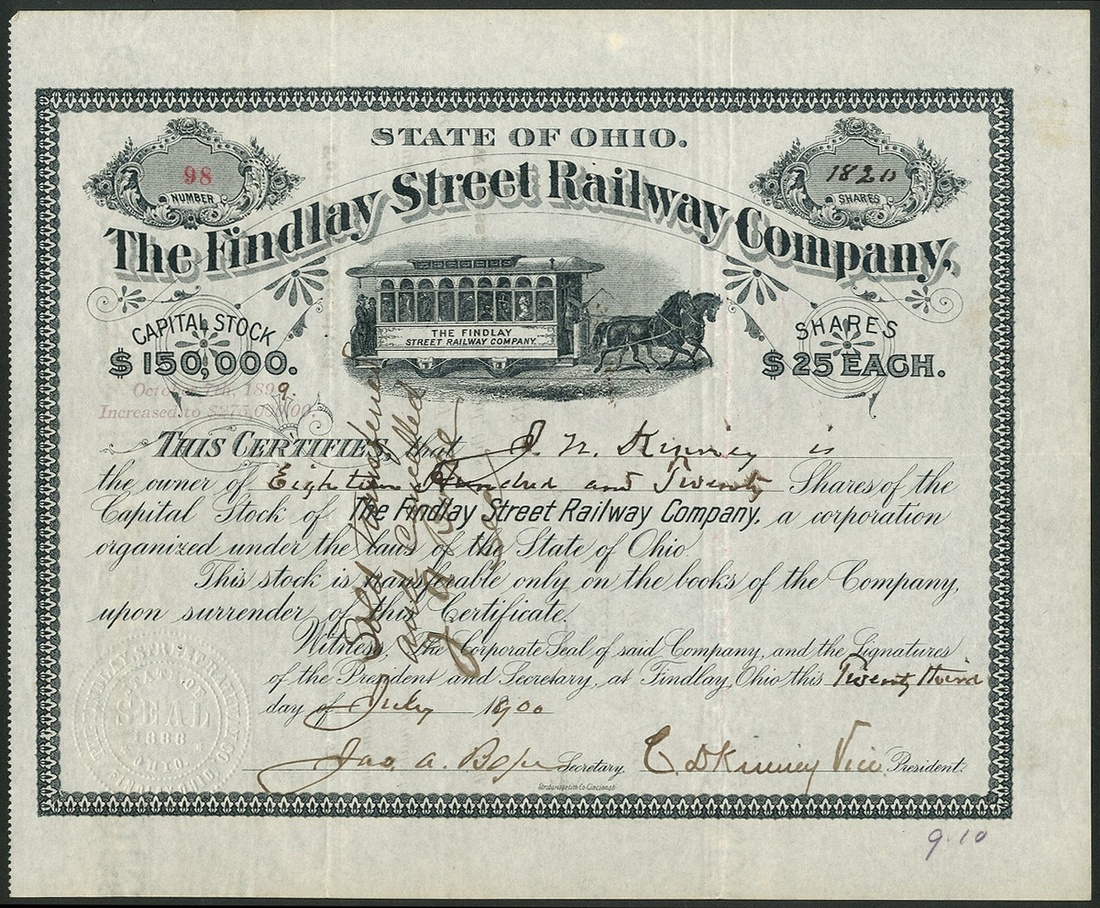 STATE OF OHIO.
98
NUMBER
1820
SHARES
The Findlay Street Railway Company,
THE FINDLAY
STREET RAILWAY COMPANY.
CAPITAL STOCK
$150,000.
SHARES
$25 EACH.
October 7th, 1899.
Increased to $275,000.00
THIS CERTIFIES, that J. N. Kinney is
the owner of Eighteen Hundred and Twenty Shares of the
Capital Stock of The Findlay Street Railway Company, a corporation
organized under the laws of the State of Ohio.
This stock is transferable only on the books of the Company,
upon surrender of this Certificate.
Witness, the Corporate Seal of said Company, and the Signatures
of the President and Secretary, at Findlay, Ohio this Twenty third
day of July 1900
Jas. A. Secretary. C D Kinney Vice President.
Sold Transferred
and Cancelled
Sec
STATE OF
SEAL
1888
OHIO.
9.10